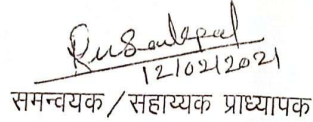 12/02/2021
समन्वयक / सहाय्यक प्राध्यापक